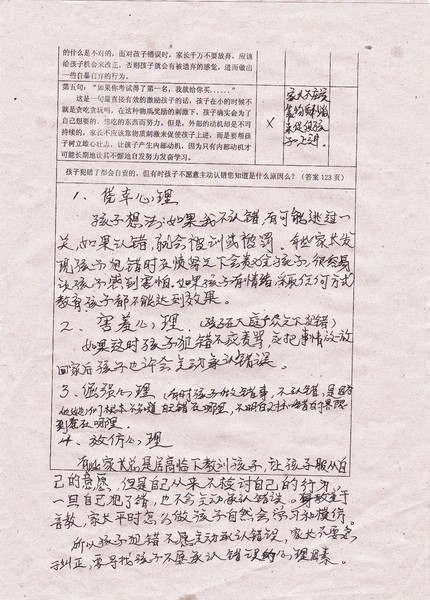 的什么是不对的，面对孩子错误时，家长千万不要放弃，应该
给孩子机会来改正，否则孩子就会有被遗弃的感觉，进而做出
一些自暴自弃的行为。
第五句：“如果你考试得了第一名，我就给你买……”
这是一句最直接有效的激励孩子的话，孩子在小的时候不
就是贪吃贪玩吗，在这种物质奖励的刺激下，孩子确实会为了
自己想要的、想吃的东西而努力。但是，外部的动机却是不可
持续的，家长不应该靠物质刺激来促使孩子上进，而是要帮孩
子树立雄心壮志，让孩子产生内部动机，因为只有内部动机才
可能长期地让其不懈地自发努力发奋学习。
×
家长不应该
靠物质刺激
来促使孩
子上进。
孩子犯错了都会自责的，但有时孩子不愿意主动认错您知道是什么原因么？（答案 123 页）
1、侥幸心理
孩子想法：如果我不认错，有可能逃过一
关，如果认错，就会被训或被罚。有些家长发
现孩子犯错时在愤怒之下会责难孩子，很容易
让孩子感到害怕，如果孩子有情绪，采取任何方式
教育孩子都不能达到效果。
2、害羞心理。（孩子在大庭广众之下犯错）
如果这时孩子犯错不应责骂，应把事情放放
回家后孩子也许会主动承认错误。
3、倔强心理（有时孩子做错事，不认错，是因为
他们根本不知道自己错在哪里，不明白对和错的界限
到底在哪里。
4、效仿心理
有些家长总是居高临下教训孩子，让孩子服从自
己的意愿，但是自己从来不检讨自己的行为，
一旦自己犯了错，也不会主动承认错误。身教重于
言教，家长平时怎么做孩子自然会学习和模仿。
所以孩子犯错不愿主动承认错误，家长不要急
于纠正，要寻找孩子不愿承认错误的心理因素。